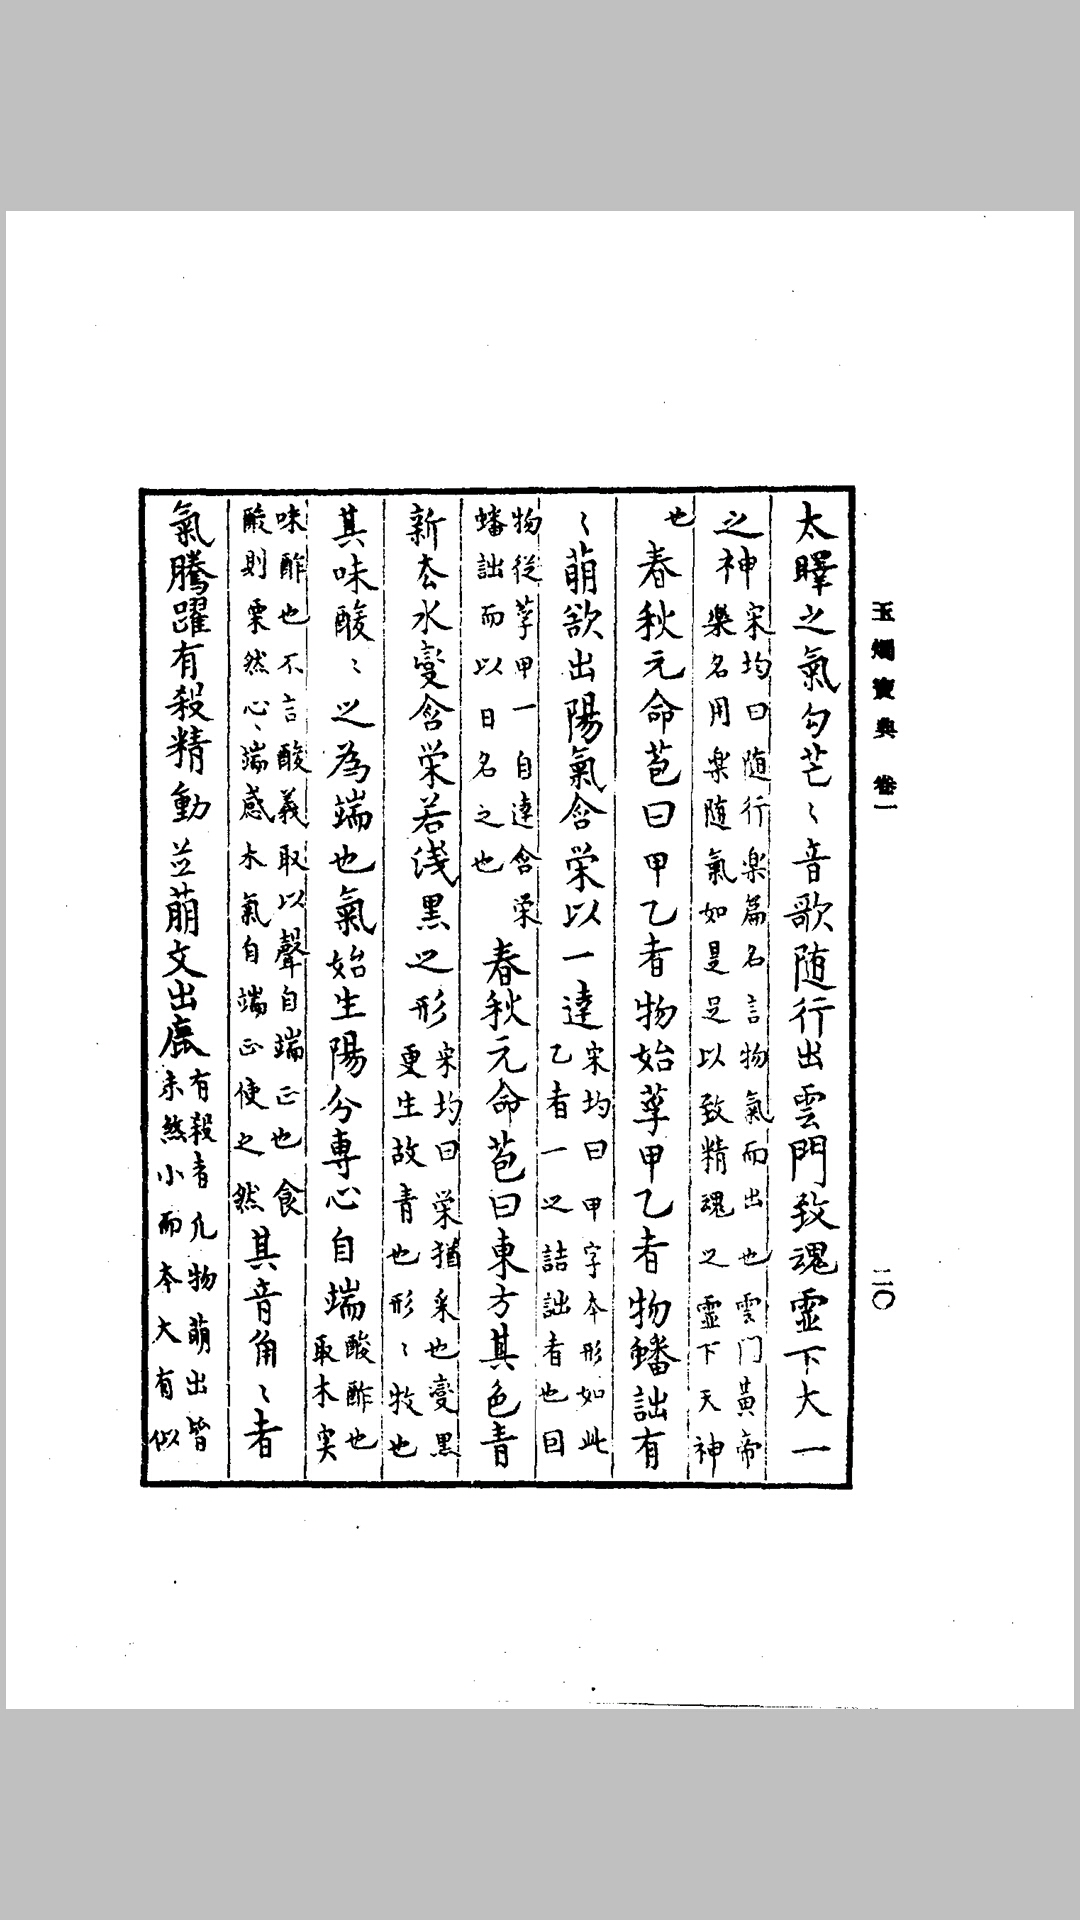 玉燭寶典 卷一
二〇
太皞之氣勾芒〻音歌随行出雲門致魂靈下大一
之神宋均曰随行楽篇名言物氣而出也雲门黃帝
楽名用楽随氣如是足以致精魂之靈下天神
也 春秋元命苞曰甲乙者物始莩甲乙者物蟠詘有
〻萌欲出陽氣含栄以一達宋均曰甲字本形如此
乙者一之詰詘者也囙
物從莩甲一自達含栄
蟠詘而以日名之也
春秋元命苞曰東方其色青
新去水變含栄若淺黒之形宋均曰栄猶采也變黒
更生故青也形〻牧也
其味酸〻之為端也氣始生陽分専心自端酸酢也
取木实
味酢也不言酸義取以聲自端正也食
酸則栗然心〻端感木氣自端正使之然
其音角〻者
氣騰躍有殺精動並萌文出鹿有殺者凢物萌出皆
未煞小而本大有似